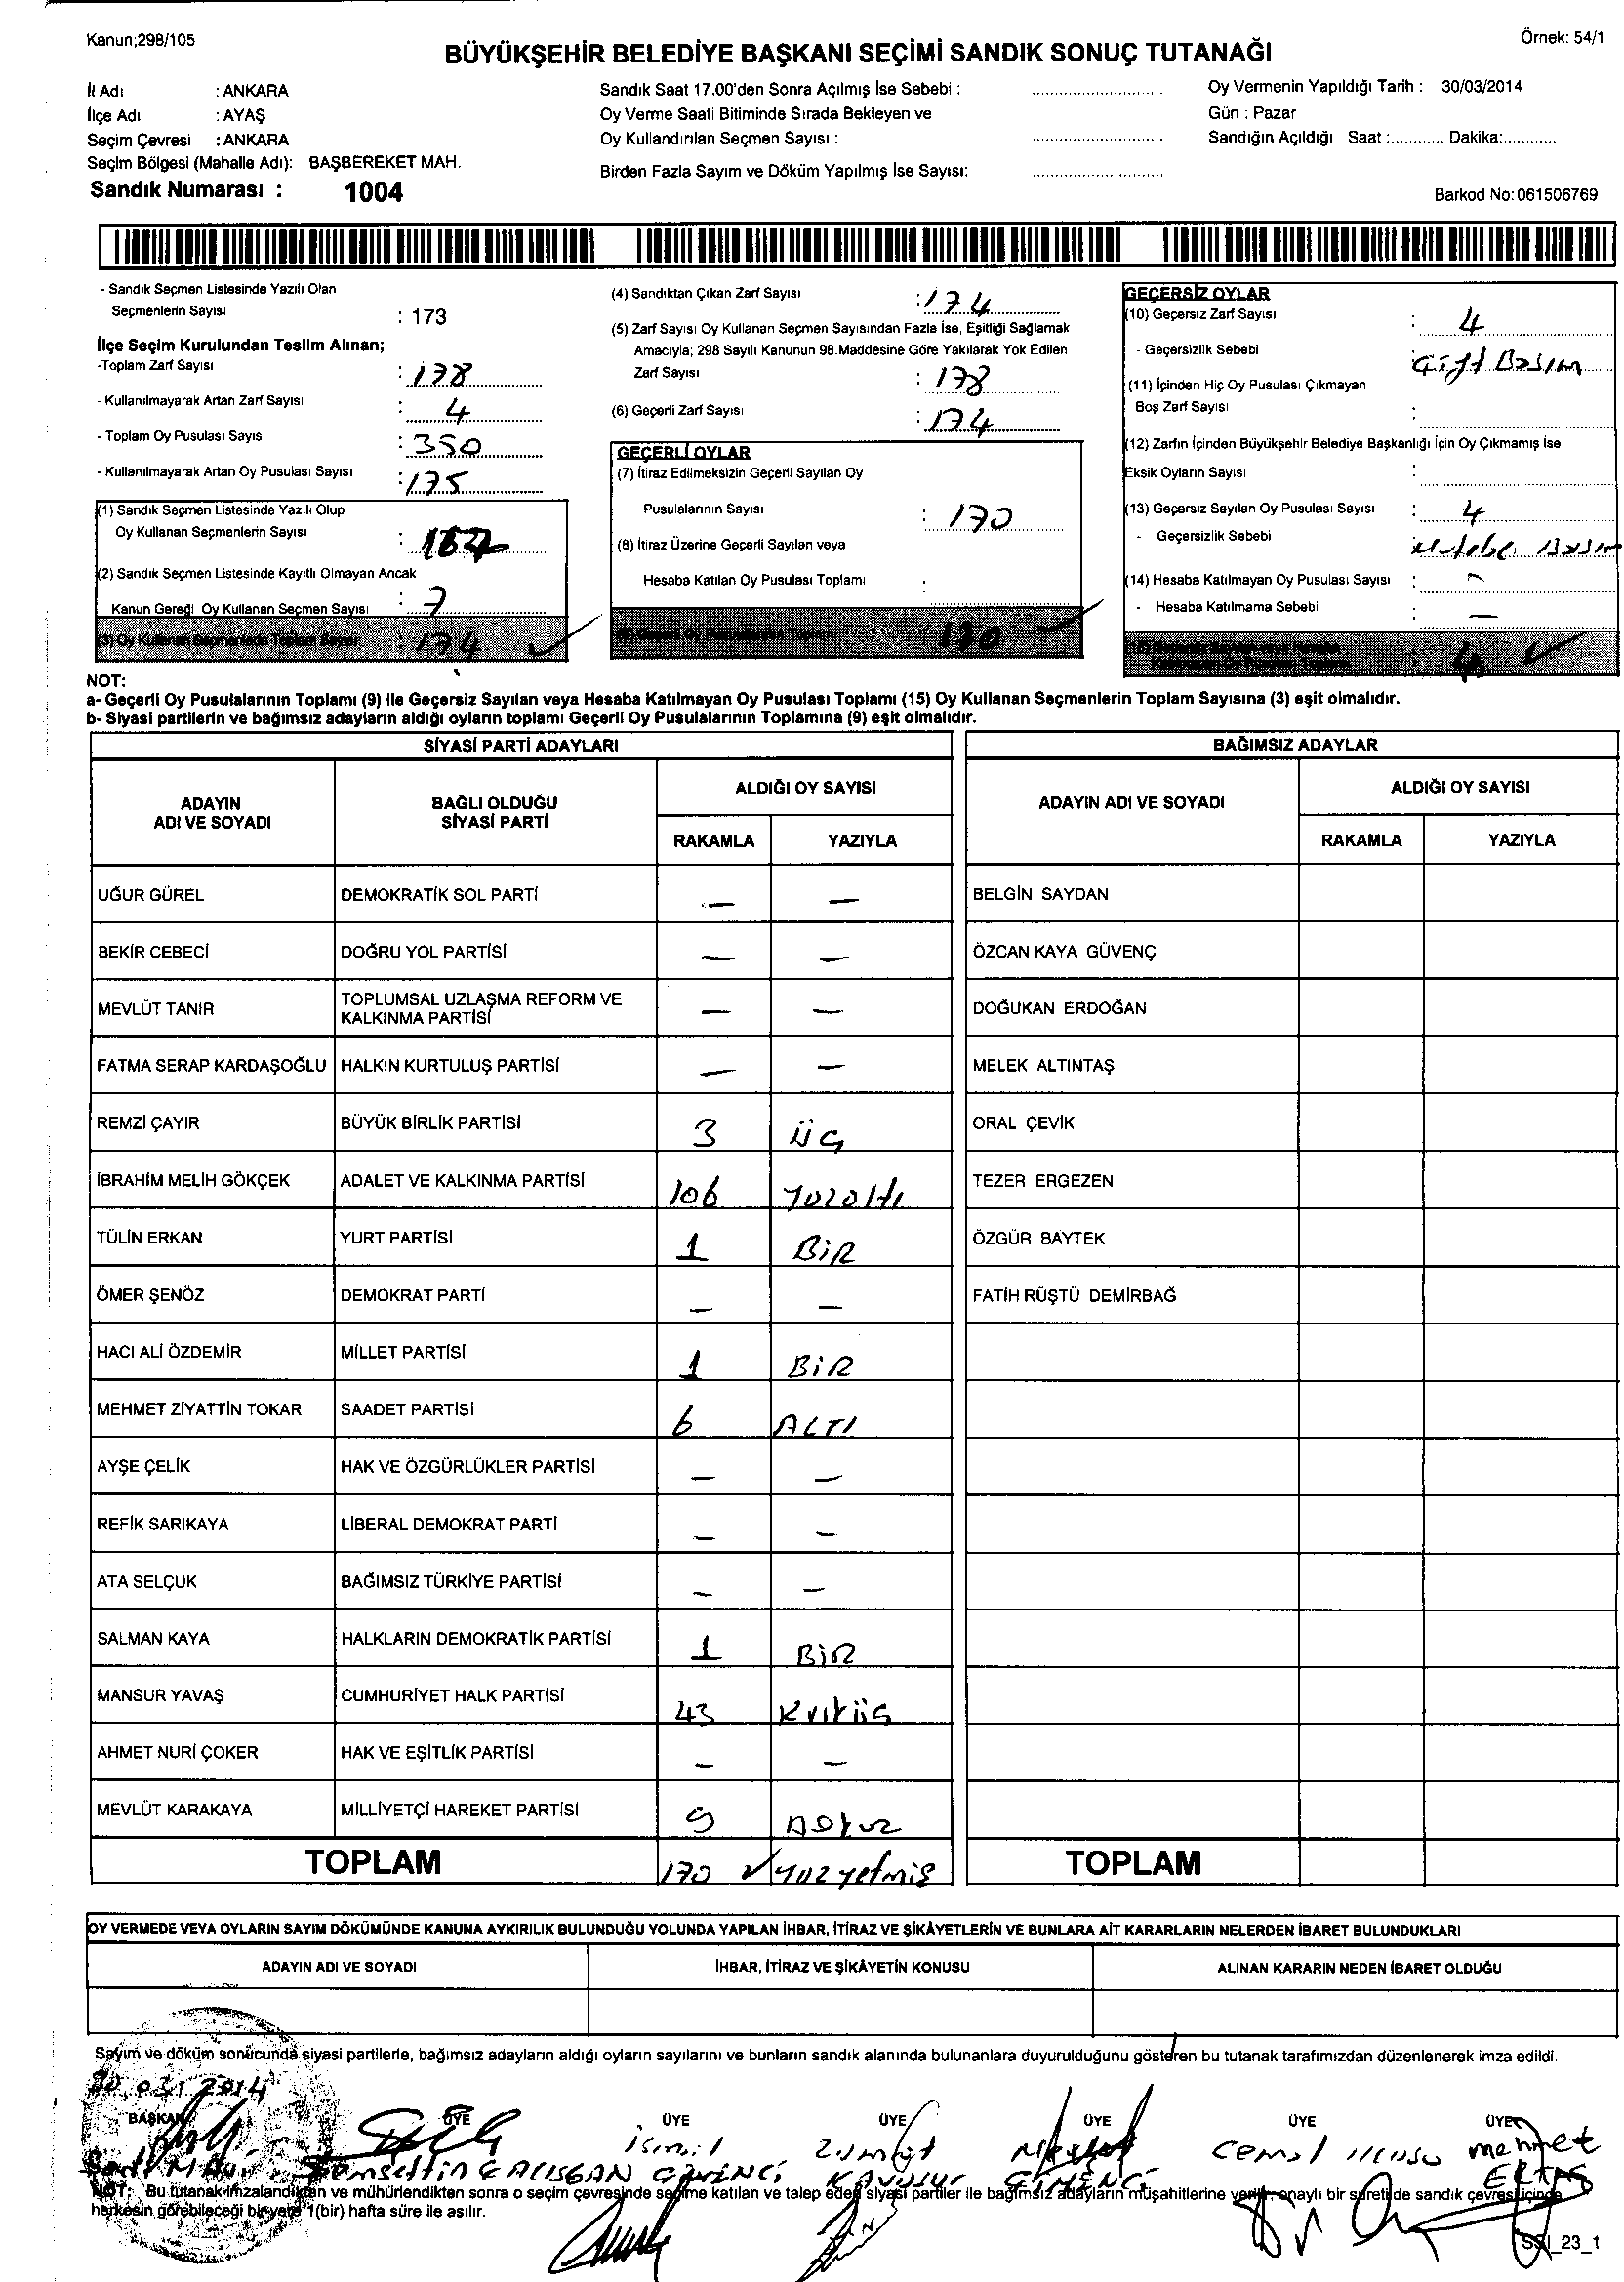 Kanun;298/105
Örnek: 54/1
BÜYÜKŞEHİR BELEDİYE BAŞKANI SEÇİMİ SANDIK SONUÇ TUTANAĞI
İl Adı : ANKARA
İlçe Adı : AYAŞ
Seçim Çevresi : ANKARA
Seçim Bölgesi (Mahalle Adı): BAŞBEREKET MAH.
Sandık Numarası : 1004
Sandık Saat 17.00'den Sonra Açılmış İse Sebebi :
Oy Verme Saati Bitiminde Sırada Bekleyen ve
Oy Kullandırılan Seçmen Sayısı :
Birden Fazla Sayım ve Döküm Yapılmış İse Sayısı:
Oy Vermenin Yapıldığı Tarih : 30/03/2014
Gün : Pazar
Sandığın Açıldığı Saat :............ Dakika:............
Barkod No:061506769
- Sandık Seçmen Listesinde Yazılı Olan
Seçmenlerin Sayısı : 173
İlçe Seçim Kurulundan Teslim Alınan;
-Toplam Zarf Sayısı : 178
- Kullanılmayarak Artan Zarf Sayısı : 4
- Toplam Oy Pusulası Sayısı : 350
- Kullanılmayarak Artan Oy Pusulası Sayısı : 175
(1) Sandık Seçmen Listesinde Yazılı Olup
Oy Kullanan Seçmenlerin Sayısı : 167
(2) Sandık Seçmen Listesinde Kayıtlı Olmayan Ancak
Kanun Gereği Oy Kullanan Seçmen Sayısı : 7
(3) Oy Kullanan Seçmenlerin Toplam Sayısı : 174
(4) Sandıktan Çıkan Zarf Sayısı : 174
(5) Zarf Sayısı Oy Kullanan Seçmen Sayısından Fazla İse, Eşitliği Sağlamak
Amacıyla; 298 Sayılı Kanunun 98.Maddesine Göre Yakılarak Yok Edilen
Zarf Sayısı : 178
(6) Geçerli Zarf Sayısı : 174
GEÇERLİ OYLAR
(7) İtiraz Edilmeksizin Geçerli Sayılan Oy
Pusulalarının Sayısı : 170
(8) İtiraz Üzerine Geçerli Sayılan veya
Hesaba Katılan Oy Pusulası Toplamı :
(9) Geçerli Oy Pusulalarının Toplamı : 170
GEÇERSİZ OYLAR
(10) Geçersiz Zarf Sayısı : 4
- Geçersizlik Sebebi Çift Basım
(11) İçinden Hiç Oy Pusulası Çıkmayan
Boş Zarf Sayısı :
(12) Zarfın İçinden Büyükşehir Belediye Başkanlığı İçin Oy Çıkmamış İse
Eksik Oyların Sayısı :
(13) Geçersiz Sayılan Oy Pusulası Sayısı : 4
- Geçersizlik Sebebi :
(14) Hesaba Katılmayan Oy Pusulası Sayısı : -
- Hesaba Katılmama Sebebi : -
4
NOT:
a- Geçerli Oy Pusulalarının Toplamı (9) ile Geçersiz Sayılan veya Hesaba Katılmayan Oy Pusulası Toplamı (15) Oy Kullanan Seçmenlerin Toplam Sayısına (3) eşit olmalıdır.
b- Siyasi partilerin ve bağımsız adayların aldığı oyların toplamı Geçerli Oy Pusulalarının Toplamına (9) eşit olmalıdır.
SİYASİ PARTİ ADAYLARI
ADAYIN ADI VE SOYADI
BAĞLI OLDUĞU SİYASİ PARTİ
ALDIĞI OY SAYISI
RAKAMLA YAZIYLA
UĞUR GÜREL DEMOKRATİK SOL PARTİ - -
BEKİR CEBECİ DOĞRU YOL PARTİSİ - -
MEVLÜT TANIR TOPLUMSAL UZLAŞMA REFORM VE KALKINMA PARTİSİ - -
FATMA SERAP KARDAŞOĞLU HALKIN KURTULUŞ PARTİSİ - -
REMZİ ÇAYIR BÜYÜK BİRLİK PARTİSİ 3 ÜÇ
İBRAHİM MELİH GÖKÇEK ADALET VE KALKINMA PARTİSİ 106 Yüzaltı
TÜLİN ERKAN YURT PARTİSİ 1 BİR
ÖMER ŞENÖZ DEMOKRAT PARTİ - -
HACI ALİ ÖZDEMİR MİLLET PARTİSİ 1 BİR
MEHMET ZİYATTİN TOKAR SAADET PARTİSİ 6 ALTI
AYŞE ÇELİK HAK VE ÖZGÜRLÜKLER PARTİSİ - -
REFİK SARIKAYA LİBERAL DEMOKRAT PARTİ - -
ATA SELÇUK BAĞIMSIZ TÜRKİYE PARTİSİ - -
SALMAN KAYA HALKLARIN DEMOKRATİK PARTİSİ 1 BİR
MANSUR YAVAŞ CUMHURİYET HALK PARTİSİ 43 Kırküç
AHMET NURİ ÇOKER HAK VE EŞİTLİK PARTİSİ - -
MEVLÜT KARAKAYA MİLLİYETÇİ HAREKET PARTİSİ 9 Dokuz
TOPLAM 170 yüzyetmiş
BAĞIMSIZ ADAYLAR
ADAYIN ADI VE SOYADI
ALDIĞI OY SAYISI
RAKAMLA YAZIYLA
BELGİN SAYDAN
ÖZCAN KAYA GÜVENÇ
DOĞUKAN ERDOĞAN
MELEK ALTINTAŞ
ORAL ÇEVİK
TEZER ERGEZEN
ÖZGÜR BAYTEK
FATİH RÜŞTÜ DEMİRBAĞ
TOPLAM
OY VERMEDE VEYA OYLARIN SAYIM DÖKÜMÜNDE KANUNA AYKIRILIK BULUNDUĞU YOLUNDA YAPILAN İHBAR, İTİRAZ VE ŞİKÂYETLERİN VE BUNLARA AİT KARARLARIN NELERDEN İBARET BULUNDUKLARI
ADAYIN ADI VE SOYADI
İHBAR, İTİRAZ VE ŞİKÂYETİN KONUSU
ALINAN KARARIN NEDEN İBARET OLDUĞU
Sayım ve döküm sonucunda siyasi partilerle, bağımsız adayların aldığı oyların sayılarını ve bunların sandık alanında bulunanlara duyurulduğunu gösteren bu tutanak tarafımızdan düzenlenerek imza edildi.
30.03.2014
BAŞKAN ÜYE ÜYE ÜYE ÜYE ÜYE ÜYE
Şemsettin ÇALIŞGAN
İsmail
Cemal
mehmet
NOT: Bu tutanak imzalandıktan ve mühürlendikten sonra o seçim çevresinde seçime katılan ve talep eden siyasi partiler ile bağımsız adayların müşahitlerine verilir, onaylı bir sureti de sandık çevresi içinde
herkesin görebileceği bir yere 1(bir) hafta süre ile asılır.
SSI_23_1